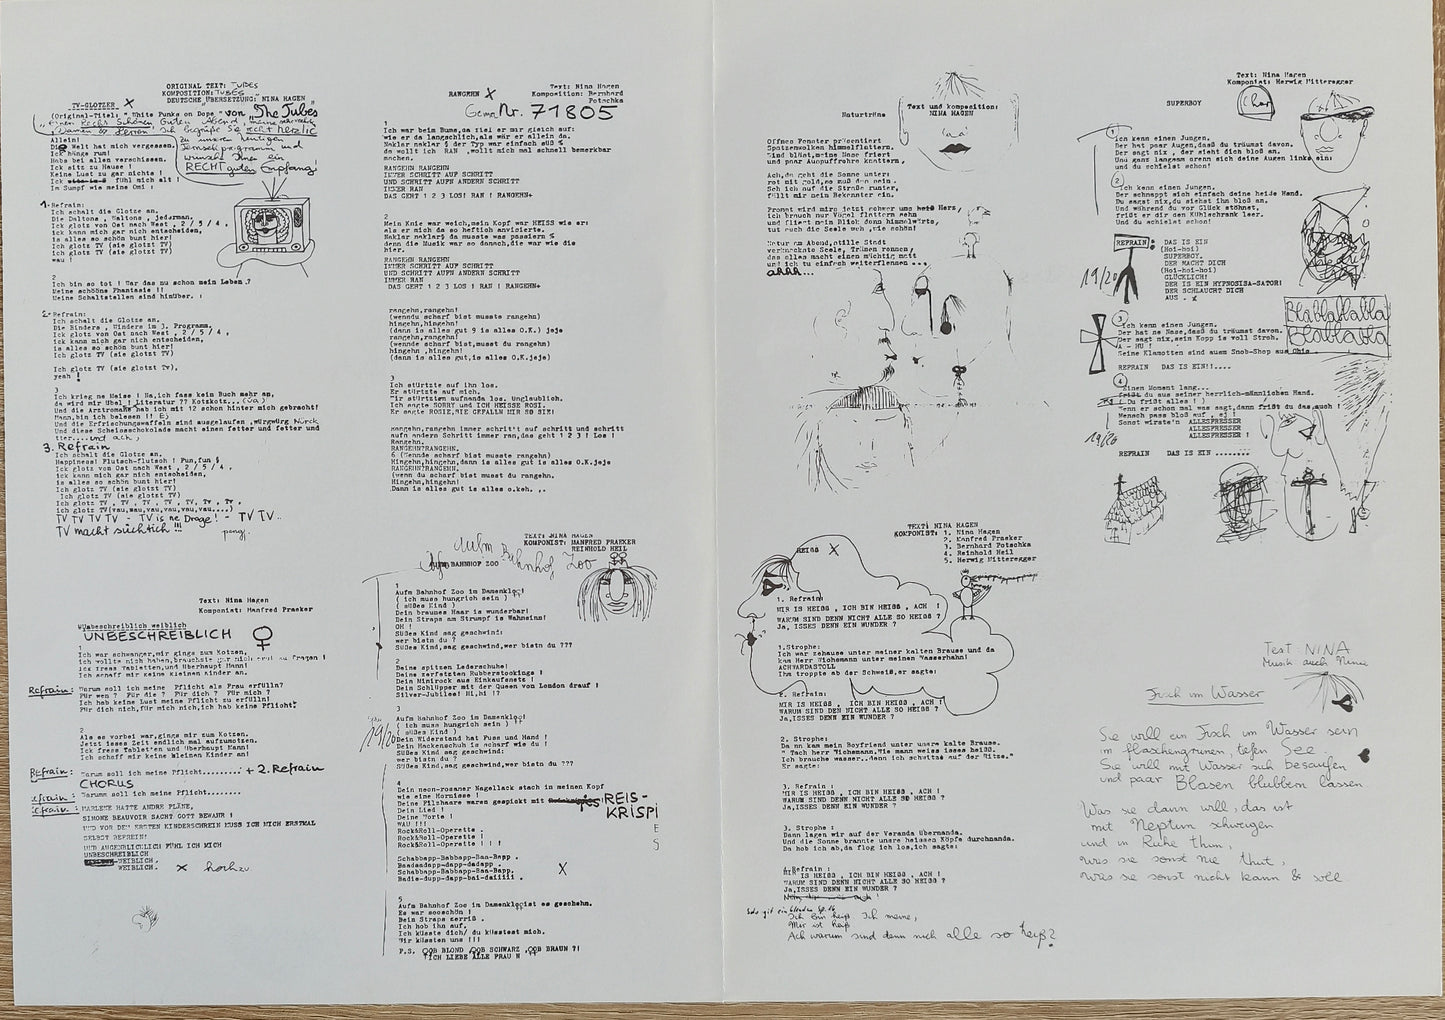 ORIGINAL TEXT: TUBES
KOMPOSITION: TUBES
DEUTSCHE ÜBERSETZUNG: "NINA HAGEN"
TV-GLOTZER X
(Original-Titel: "White Punks on Dope" von "The Tubes"
"einen Recht Schönen Guten Abend, meine sehr verehrten
Damen & Herren" Ich begrüße Sie recht herzlic
zu unserem heutigen
Fernsehprogramm und
wünsche Ihnen ein
RECHT guten Empfang!
Allein!
Die Welt hat mich vergessen.
Ick hänge rum!
Habs bei allen verschissen.
Ick sitz zu Hause !
Keine Lust zu gar nichts !
Ick fühl mich alt !
Im Sumpf wie meine Omi :
1. Refrain:
Ich schalt die Glotze an.
Die Daltons , Waltons , jederman.
Ick glotz von Ost nach West , 2 / 5 / 4 .
ick kann mich gar nich entscheiden,
is alles so schön bunt hier!
Ich glotz TV (sie glotzt TV)
Ich glotz TV (sie glotzt TV)
wau !
2
Ich bin so tot ! War das nu schon mein Leben ?
Meine schööne Phantasie !!
Meine Schaltstellen sind hinüber. :
2. Refrain:
Ich schalt die Glotze an.
Die Binders , Winders im 3. Programm,
Ick glotz von Ost nach West , 2 / 5 / 4 ,
ick kann mich gar nich entscheiden,
is alles so schön bunt hier!
Ich glotz TV (sie glotzt TV)
Ich glotz TV (sie glotzt TV),
yeah !
3
Ich krieg ne Meise ! Na,ich fass kein Buch mehr an,
da wird mir übel ! Literatur ?? Kotzkotz...(va)
Und die Arztromane hab ich mit 12 schon hinter mich gebracht!
Mann,bin ich belesen !!
Und die Erfrischungswaffeln sind ausgelaufen ,würgwürg Nürck
Und diese Scheisschokolade macht einen fetter und fetter und
tter....und ach,
3. Refrain
Ich schalt die Glotze an.
Happiness! Flutsch-flutsch ! Fun,fun
Ick glotz von Ost nach West , 2 / 5 / 4 ,
ick kann mich gar nich entscheiden,
is alles so schön bunt hier!
Ich glotz TV (sie glotzt TV)
Ich glotz TV (sie glotzt TV)
Ich glotz TV , TV , TV , TV , TV , TV ,
ich glotz TV(vau,vau,vau,vau,vau....)
TV TV TV TV - TV is ne Droge! - TV TV..
TV macht süchtich !!!
pong!
RANGEHN X
Text: Nina Hagen
Komposition: Bernhard
Potschka
Gema Nr. 71805
1
Ich war beim Bums,da fiel er mir gleich auf:
wie er da langschlich,als wär er allein da.
Naklar naklar der Typ war einfach süß
da wollt ich RAN ,wollt mich mal schnell bemerkbar
machen.
RANGEHN RANGEHN
IMMER SCHRITT AUF SCHRITT
UND SCHRITT AUFN ANDERN SCHRITT
IMMER RAN
DAS GEHT 1 2 3 LOS! RAN ! RANGEHN+
2
Mein Knie war weich,mein Kopf war HEISS wie er:
als er mich da so heftich anvisierte.
Naklar naklar da musste was passiern
denn die Musik war so danach,die war wie die
hier.
RANGEHN RANGEHN
IMMER SCHRITT AUF SCHRITT
UND SCHRITT AUFN ANDERN SCHRITT
IMMER RAN
DAS GEHT 1 2 3 LOS ! RAN ! RANGEHN+
rangehn,rangehn!
(wenndu scharf bist musste rangehn)
hingehn,hingehn!
(dann is alles gut 9 is alles O.K.) jeje
rangehn,rangehn!
(wennde scharf bist,musst du rangehn)
hingehn ,hingehn!
(dann is alles gut,is alles O.K.jeje)
3
Ich stürtzte auf ihn los.
Er stürtzte auf mich.
Wir stürtzten aufnanda los. Unglaublich.
Ich sagte SORRY und ICH HEISSE ROSI.
Er sagte ROSIE,WIE GEFALLN MIR SO SIE!
Rangehn,rangehn immer schritt auf schritt und schritt
aufn andern Schritt immer ran,das geht 1 2 3 ! Los !
Rangehn.
RANGEHN!RANGEHN.
6 (Wenndu scharf bist musste rangehn)
Hingehn,hingehn,dann is alles gut is alles O.K.jeje
RANGEHN!RANGEHN.
(wenn du scharf bist musst du rangehn.
Hingehn,hingehn!
Dann is alles gut is alles o.keh. ..
Text: Nina Hagen
Komponist: Manfred Praeker
Unbeschreiblich weiblich
UNBESCHREIBLICH ♀
1
Ich war schwanger,mir gings zum Kotzen,
ich wollts nich haben,brauchste gar nich erst zu fragen !
Ick fress Tabletten,und überhaupt Mann!
Ich schaff mir keine kleinen Kinder an.
Refrain: Warum soll ich meine Pflicht als Frau erfülln?
Für wen ? Für die ? Für dich ? Für mich ?
Ich hab keine Lust meine Pflicht zu erfülln!
Für dich nich,für mich nich,ich hab keine Pflicht!
2
Als es vorbei war,gings mir zum Kotzen.
Jetzt isses Zeit endlich mal aufzumotzen.
Ick fress Tabletten und überhaupt Mann!
Ich schaff mir keine kleinen Kinder an!
Refrain: Warum soll ich meine Pflicht......... + 2. Refrain
CHORUS
Refrain: Warumm soll ich meine Pflicht........
Refrain: MARLENE HATTE ANDRE PLÄNE,
SIMONE BEAUVOIR SACHT GOTT BEWAHR !
UND VOR DEM ERSTEN KINDERSCHREIN MUSS ICH MICH ERSTMAL
SELBST BEFREIN!
UND AUGENBLICKLICH FÜHL ICH MICH
UNBESCHREIBLICH
WEIBLICH.
WEIBLICH. X hoch zu
TEXT: NINA HAGEN
KOMPONIST: MANFRED PRAEKER
REINHOLD HEIL
Aufm Bahnhof Zoo
Aufm BAHNHOF ZOO
1
Aufm Bahnhof Zoo im Damenklo!
( ich muss hungrich sein )
( süßes Kind )
Dein braunes Haar is wunderbar!
Dein Straps am Strumpf is Wahnsinn!
OH !
Süßes Kind sag geschwind:
wer bistn du ?
Süßes Kind,sag geschwind,wer bistn du ???
2
Deine spitzen Lederschuhe!
Deine zerfetzten Rubberstockings !
Dein Minirock aus Einkaufsnetz !
Dein Schlüpper mit der Queen von London drauf !
Silver-Jubilee! Hi,hi !?
3
Aufm Bahnhof Zoo im Damenklo!
( ich muss hungrich sein )
( süßes Kind )
Dein Widerstand hat Fuss und Hand !
Dein Hackenschuh is scharf wie du !
Süßes Kind sag geschwind,
wer bistn du ?
Süßes Kind,sag geschwind,wer bistn du ???
19/20
4
Dein neon-rosaner Nagellack stach in meinen Kopf
wie eine Hornisse !
Deine Pilshaare waren gespickt mit REIS-
KRISPI
E
S
Dein Lied !
Deine Worte !
WAU !!!
Rock&Roll-Operette .
Rock&Roll-Operette !
Rock&Roll-Operette ! ! !
Schabbapp-Babbapp-Baa-Bapp .
Baadaadapp-dapp-dadapp .
Schabbapp-Babbapp-Baa-Bapp.
Badie-dupp-dapp-bai-daiiiii .
X
5
Aufm Bahnhof Zoo im Damenklo ist es geschehn.
Es war sooschön !
Dein Straps zerriß .
Ich hob ihn auf,
Ich küsste dich/ du küsstest mich.
Wir küssten uns !!!
P.S. OOB BLOND ,OOB SCHWARZ ,OOB BRAUN ?!
!ICH LIEBE ALLE FRAU N
Text und komposition:
NINA HAGEN
Naturträne
Offnes Fenster präsentiert
Spatzenwolken himmelflattern.
Wind bläst,meine Nase friert
und paar Auspuffrohre knattern,
Ach,da geht die Sonne unter:
rot mit gold,so muß das sein.
Seh ich auf die Straße runter,
fällt mir mein Bekannter ein.
Prompt wird mirs jetzt schwer ums Herz,
ich brauch nur Vögel flattern sehn
und fliegt mein Blick dann himmelwärts,
tut auch die Seele weh ,wie schön!
Natur am Abend,stille Stadt
verknackste Seele, Tränen rennen,
das alles macht einen mächtig matt
und ich tu einfach weiterflennen ...
ahhh...
Text: Nina Hagen
Komponist: Herwig Mitteregger
SUPERBOY
Chor
1
Ich kenn einen Jungen.
Der hat paar Augen,daß du träumst davon.
Der sagt nix , der sieht dich bloß an.
Und ganz langsam grenn sich deine Augen links ein:
und du schielst schon!
2
Ich kenn einen Jungen.
Der schnappt sich einfach deine heide Hand.
Du sagst nix,du siehst ihn bloß an.
Und während du vor Glück stöhnst,
frißt er dir den Kühlschrank leer.
Und du schielst schon!
REFRAIN: DAS IS EIN
(Hoi-hoi)
SUPERBOY.
DER MACHT DICH
(Hoi-hoi-hoi)
GLÜCKLICH!
DER IS EIN HYPNOSISA-SATOR!
DER SCHLAUCHT DICH
AUS .
19/20
3
Ich kenn einen Jungen.
Der hat ne Nase,daß du träumst davon.
Der sagt nix,sein Kopp is voll Stroh.
A - HU !
Seine Klamotten sind ausm Snob-Shop aus Ohio .
REFRAIN DAS IS EIN!!....
Blablablabla
Blablabla
4
Einen Moment lang...
frißt du aus seiner herrlich-männlichen Hand.
( Du frißt alles ! )
Wenn er schon mal was sagt,dann frißt du das,auch !
Mensch pass bloß auf , ej !
Sonst wirste'n ALLESFRESSER
ALLESFRESSER
ALLESFRESSER !
19/20
REFRAIN DAS IS EIN ........
TEXT: NINA HAGEN
KOMPONIST: 1. Nina Hagen
2. Manfred Praeker
3. Bernhard Potschka
4. Reinhold Heil
5. Herwig Mitteregger
HEIß X
1. Refrain:
MIR IS HEIßß , ICH BIN HEIßß , ACH !
WARUM SIND DENN NICHT ALLE SO HEIßß ?
Ja, ISSES DENN EIN WUNDER ?
1.Strophe:
Ich war zehause unter meiner kalten Brause und da
kam Herr Wichsmann unter meinen Wasserhahn!
ACHWARDASTOLL
Ihm troppte ab der Schweiß,er sagte:
2. Refrain:
MIR IS HEIßß , ICH BIN HEIßß , ACH !
WARUM SIND DEN NICHT ALLE SO HEIßß ?
Ja,ISSES DENN EIN WUNDER ?
2. Strophe:
Da kam mein Boyfriend unter unsre kalte Brause.
" Tach herr Wichsmann,Wie wanns weiss isses heißß.
Ich brauche wasser..denn ich schwitze auf der Ritze."
Er sagte:
3. Refrain :
MIR IS HEIßß , ICH BIN HEIßß , ACH !
WARUM SIND DENN NICHT ALLE SO HEIßß ?
Ja,ISSES DENN EIN WUNDER ?
3. Strophe :
Dann lagen wir auf der Veranda übernanda.
Und die Sonne brannte unsre heissen Köpfe durchnanda.
Da hob ich ab,da flog ich los,ich sagte:
Refrain :
MIR IS HEIßß , ICH BIN HEIßß , ACH !
WARUM SIND DENN NICHT ALLE SO HEIßß ?
Ja,ISSES DENN EIN WUNDER ?
Ich bin heiß Ich meine,
Mir ist heiß
Ach warum sind denn nich alle so heiß?
Text: NINA
Musik auch Nina
Fisch im Wasser
Sie will ein Fisch im Wasser sein
im flaschengrünen, tiefen See
Sie will mit Wasser sich besaufen
und paar Blasen blubbern lassen
Was sie dann will, das ist
mit Neptun schweigen
und in Ruhe thun,
was sie sonst nie thut,
was sie sonst nicht kann & soll